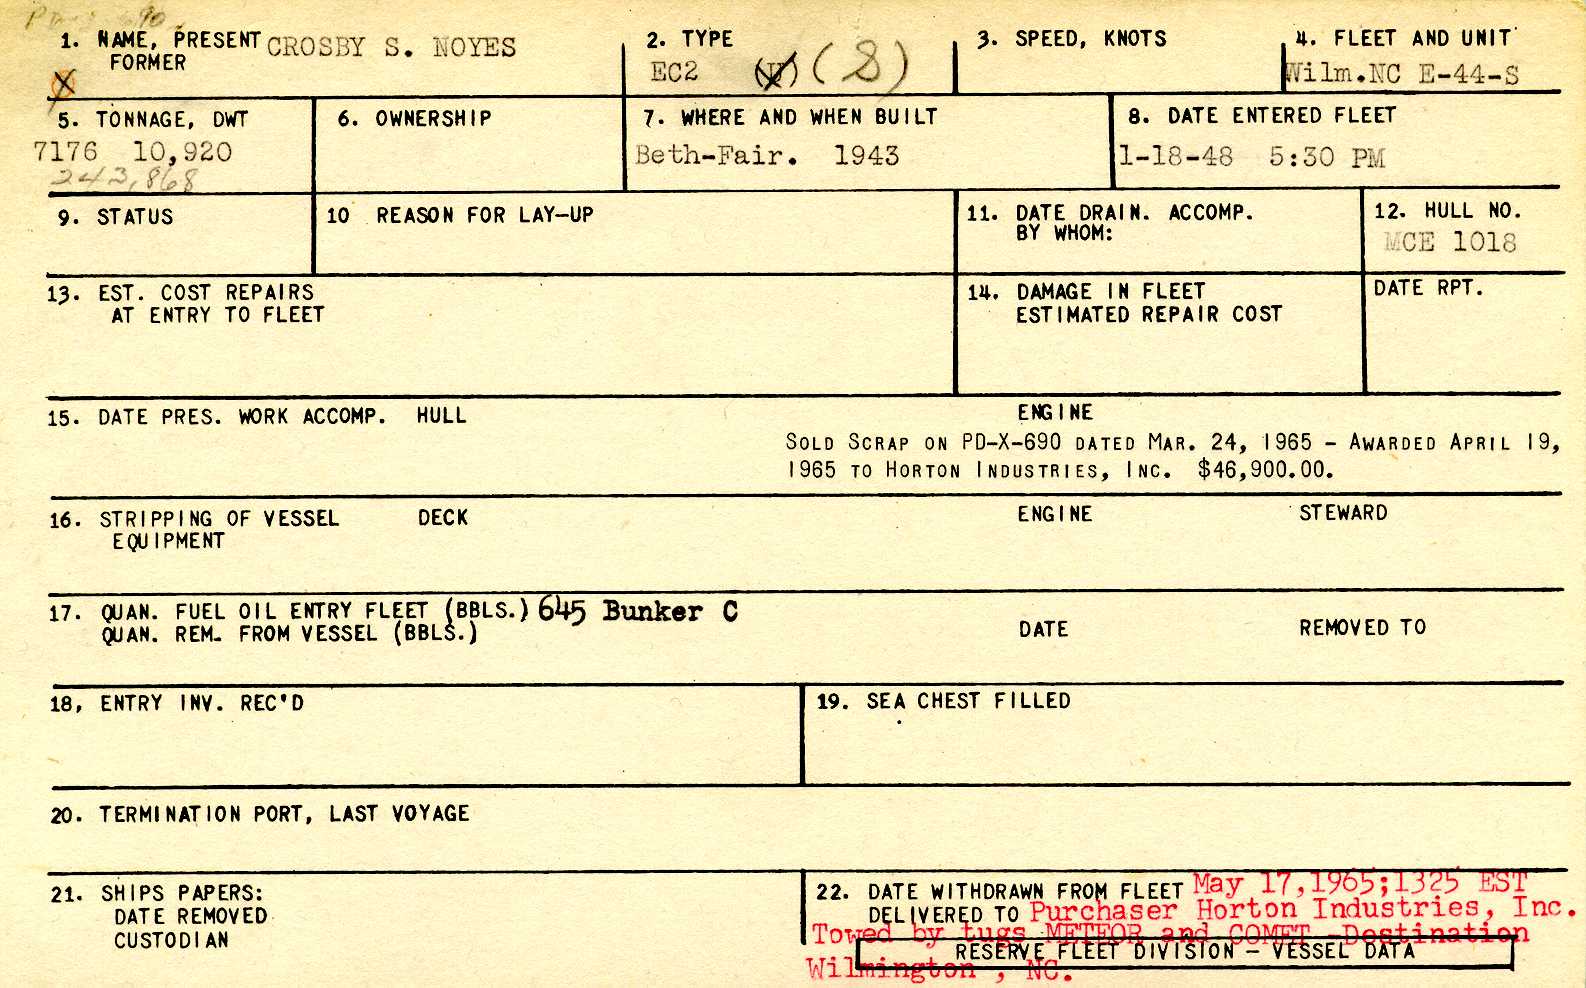 1. NAME, PRESENT CROSBY S. NOYES
FORMER
2. TYPE
EC2 (S)
3. SPEED, KNOTS
4. FLEET AND UNIT
Wilm.NC E-44-S
5. TONNAGE, DWT
7176 10,920
243,868
6. OWNERSHIP
7. WHERE AND WHEN BUILT
Beth-Fair. 1943
8. DATE ENTERED FLEET
1-18-48 5:30 PM
9. STATUS
10 REASON FOR LAY-UP
11. DATE DRAIN. ACCOMP.
BY WHOM:
12. HULL NO.
MCE 1018
13. EST. COST REPAIRS
AT ENTRY TO FLEET
14. DAMAGE IN FLEET
ESTIMATED REPAIR COST
DATE RPT.
15. DATE PRES. WORK ACCOMP. HULL ENGINE
SOLD SCRAP ON PD-X-690 DATED MAR. 24, 1965 - AWARDED APRIL 19,
1965 TO HORTON INDUSTRIES, INC. $46,900.00.
16. STRIPPING OF VESSEL DECK ENGINE STEWARD
EQUIPMENT
17. QUAN. FUEL OIL ENTRY FLEET (BBLS.) 645 Bunker C
QUAN. REM. FROM VESSEL (BBLS.) DATE REMOVED TO
18, ENTRY INV. REC'D
19. SEA CHEST FILLED
20. TERMINATION PORT, LAST VOYAGE
21. SHIPS PAPERS:
DATE REMOVED
CUSTODIAN
22. DATE WITHDRAWN FROM FLEET May 17,1965;1325 EST
DELIVERED TO Purchaser Horton Industries, Inc.
Towed by tugs METEOR and COMET -Destination
RESERVE FLEET DIVISION - VESSEL DATA
Wilmington , NC.